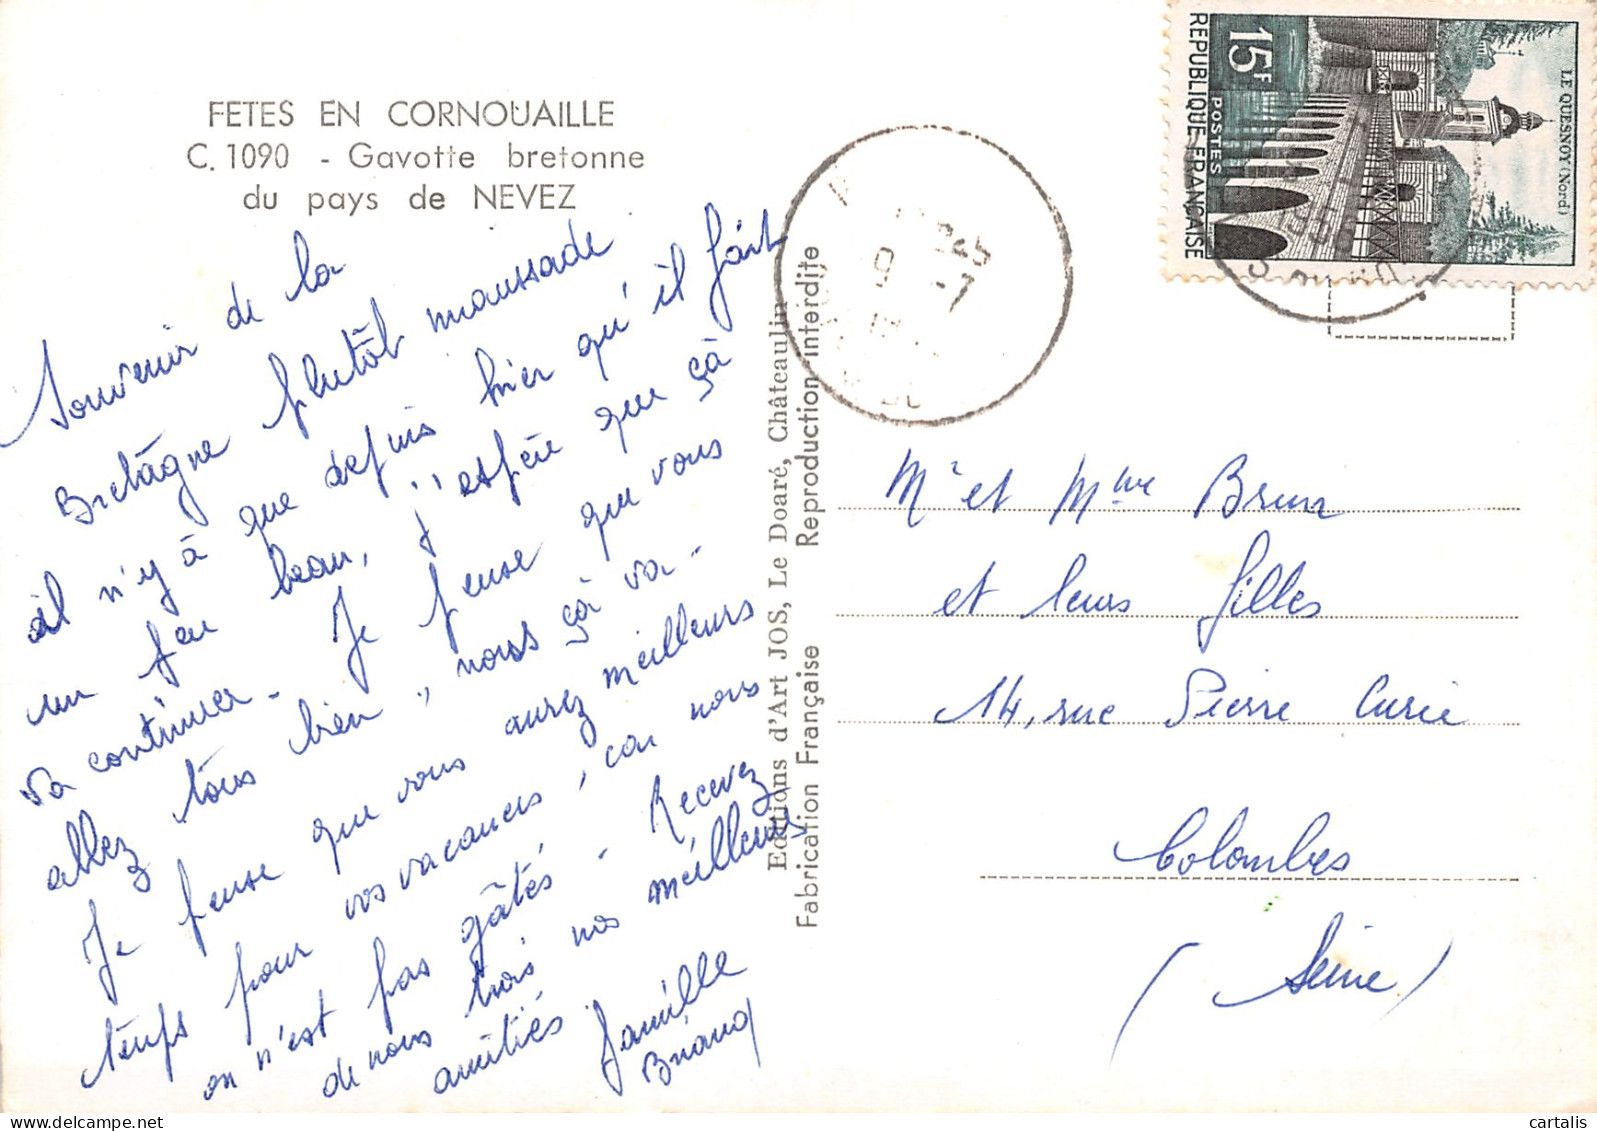 FETES EN CORNOUAILLE
C. 1090 - Gavotte bretonne
du pays de NEVEZ
Souvenir de la
Bretâgne plutôt maussade
il n'y à que depuis hier qu'il fait
un peu beau, j'espère que çà
va continuer. Je pense que vous
allez tous bien, nous çà va.
Je pense que vous aurez meilleurs
temps pour vos vacances, car nous
on n'est pas gâtés. Recevez
de nous trois nos meilleures
amitiés
Famille
Briand
Editions d'Art JOS, Le Doaré, Châteaulin
Fabrication Française Reproduction interdite
15F
POSTES
REPUBLIQUE FRANÇAISE
LE QUESNOY (Nord)
9 -7
Mr et Mme Brun
et leurs filles
14, rue Pierre Curie
Colombes
(Seine)
cartalis